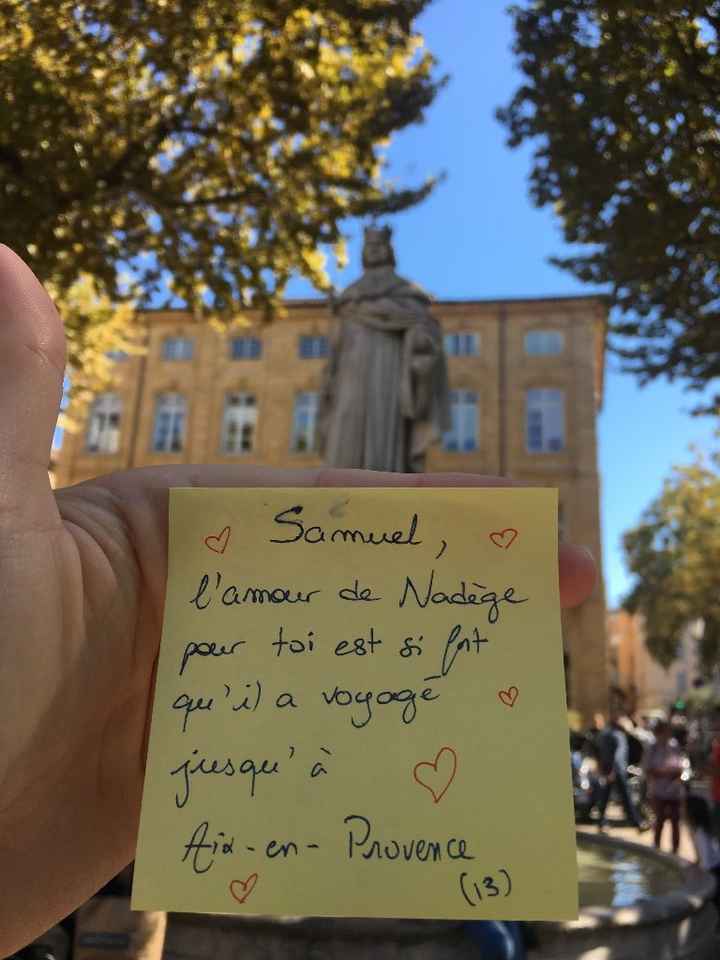 Samuel,
l'amour de Nadège
pour toi est si fort
qu'il a voyagé
jusqu'à
Aix-en-Provence
(13)